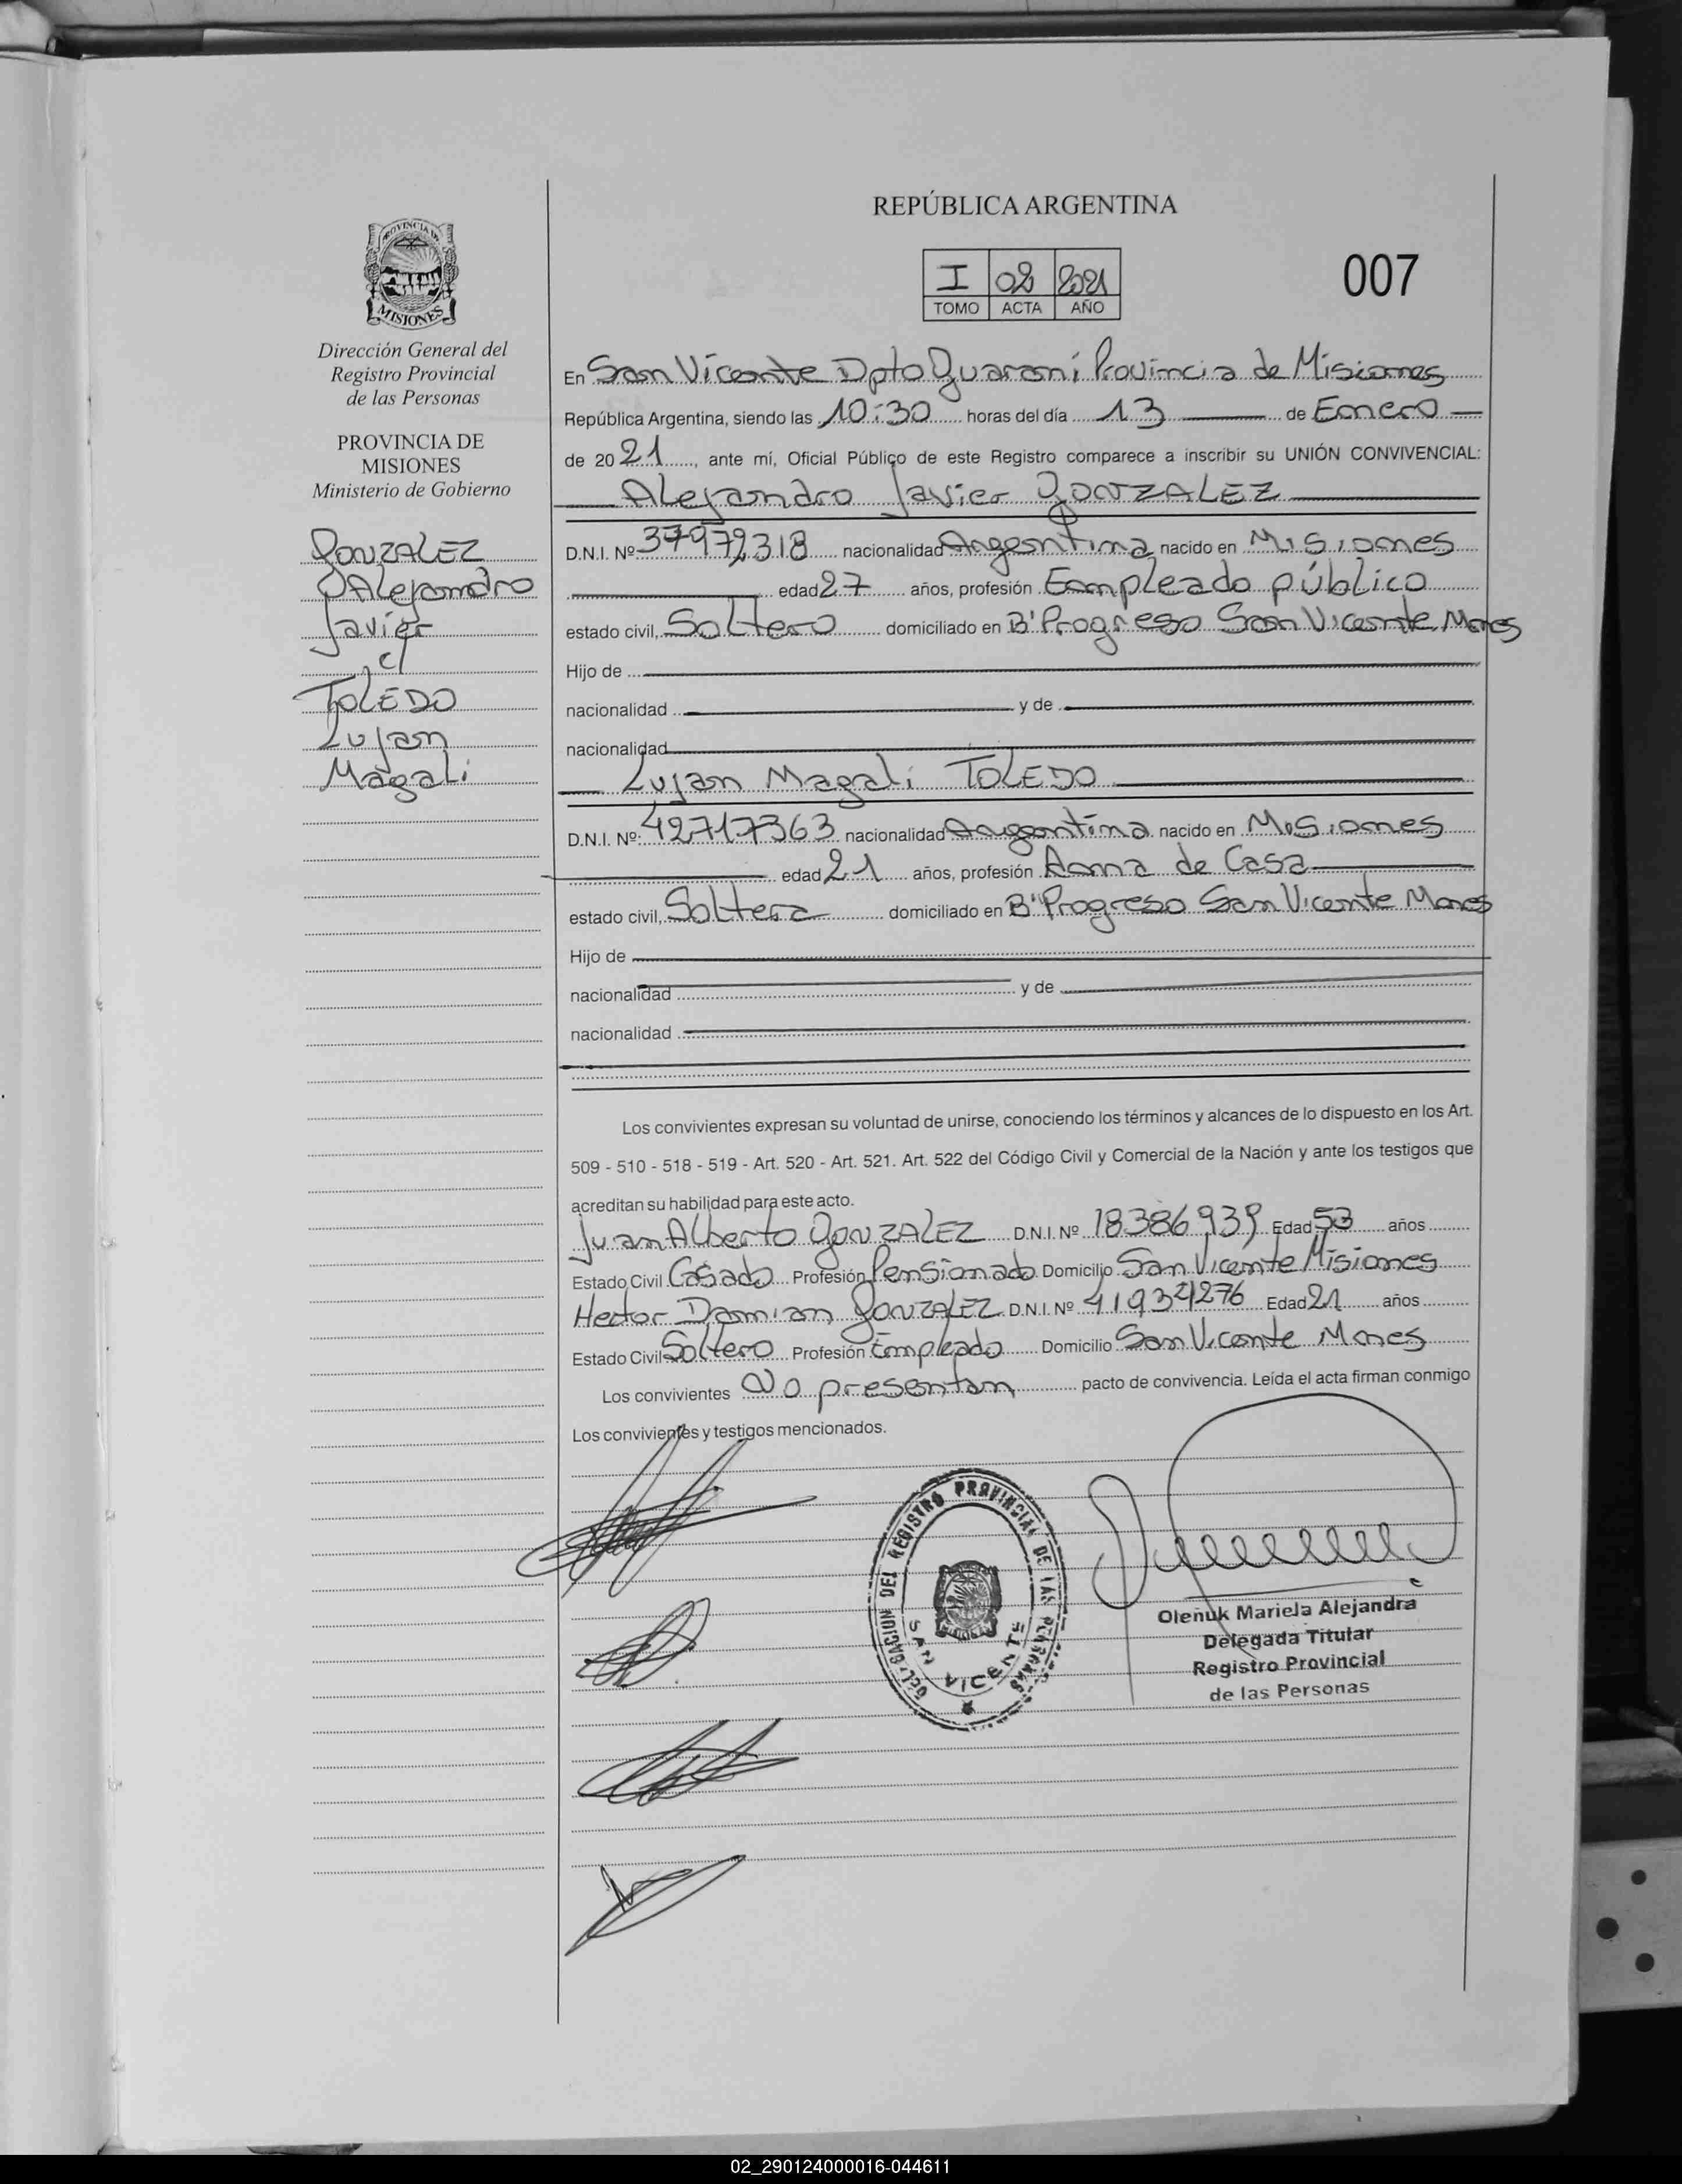 REPÚBLICA ARGENTINA
PROVINCIA DE
MISIONES
I 02 2021
TOMO ACTA AÑO
007
Dirección General del
Registro Provincial
de las Personas
PROVINCIA DE
MISIONES
Ministerio de Gobierno
GONZALEZ
Alejandro
Javier
c/
TOLEDO
Lujan
Magali
En San Vicente Dpto Guaraní Provincia de Misiones
República Argentina, siendo las 10:30 horas del día 13 de Enero
de 2021, ante mí, Oficial Público de este Registro comparece a inscribir su UNIÓN CONVIVENCIAL:
Alejandro Javier GONZALEZ
D.N.I. Nº 37972318 nacionalidad Argentina nacido en Misiones
edad 27 años, profesión Empleado público
estado civil, Soltero domiciliado en B' Progreso San Vicente Mnes
Hijo de
nacionalidad y de
nacionalidad
Lujan Magali TOLEDO
D.N.I. Nº: 42717363 nacionalidad Argentina nacido en Misiones
edad 21 años, profesión Ama de Casa
estado civil, Soltera domiciliado en B' Progreso San Vicente Mnes
Hijo de
nacionalidad y de
nacionalidad
Los convivientes expresan su voluntad de unirse, conociendo los términos y alcances de lo dispuesto en los Art.
509 - 510 - 518 - 519 - Art. 520 - Art. 521. Art. 522 del Código Civil y Comercial de la Nación y ante los testigos que
acreditan su habilidad para este acto.
Juan Alberto GONZALEZ D.N.I. Nº 18386939 Edad 53 años
Estado Civil Casado Profesión Pensionado Domicilio San Vicente Misiones
Hector Damian GONZALEZ D.N.I. Nº 41934276 Edad 21 años
Estado Civil Soltero Profesión Empleado Domicilio San Vicente Mnes
Los convivientes No presentan pacto de convivencia. Leída el acta firman conmigo
Los convivientes y testigos mencionados.
DELEGACION DEL REGISTRO PROVINCIAL DE LAS PERSONAS
SAN VICENTE
Olenuk Mariela Alejandra
Delegada Titular
Registro Provincial
de las Personas
02_290124000016-044611